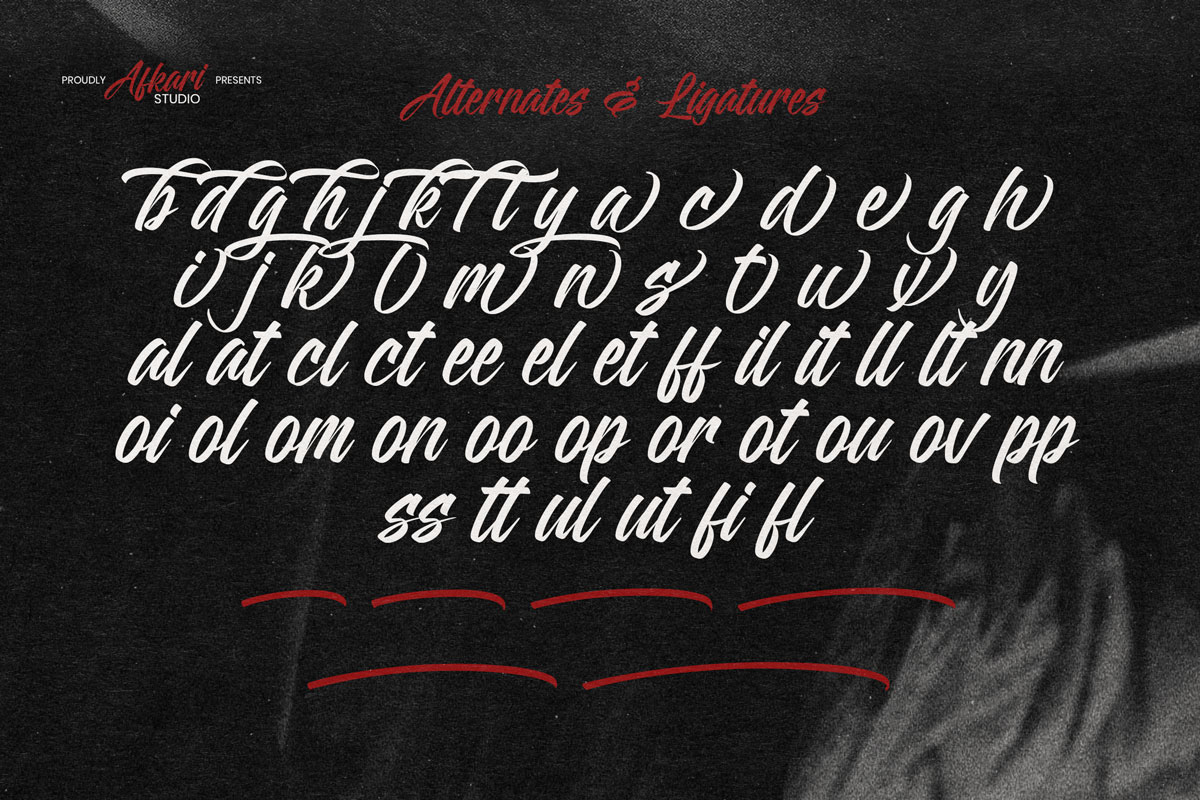 PROUDLY Afkari PRESENTS
STUDIO
Alternates & Ligatures
b d g h j k l t y a c d e g h
i j k l m n s t u v y
al at cl ct ee el et ff il it ll lt nn
oi ol om on oo op or ot ou ov pp
ss tt ul ut fi fl